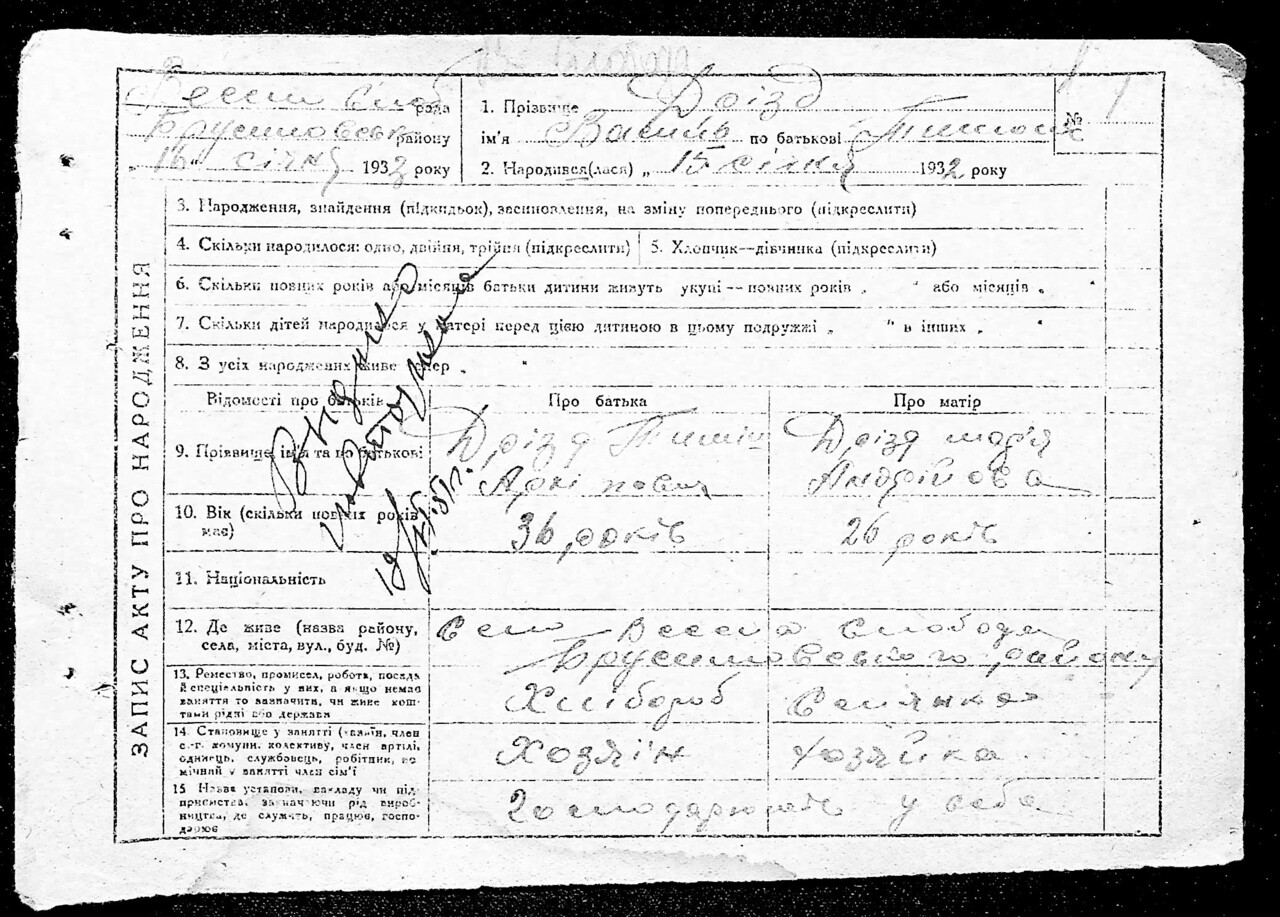 Слобода
Весела Слоб рада
Брусиловськ району
„ 16 “ січня 1932 року
1. Прізвище Дрізд
ім'я Василь по батькові Тимохв
№ 1
2. Народився(лася) „ 15 січня 1932 року
ЗАПИС АКТУ ПРО НАРОДЖЕННЯ
3. Народження, знайдення (підкидьок), засиновлення, на зміну попереднього (підкреслити)
4. Скільки народилося: одно, двійня, трійня (підкреслити)
5. Хлопчик—дівчинка (підкреслити)
6. Скільки повних років або місяців батьки дитини живуть укупі — повних років „ “ або місяців „
7. Скільки дітей народилося у матері перед цією дитиною в цьому подружжі „ “ в інших „
8. З усіх народжених живе тепер „
Відомості про батьків
Про батька
Про матір
9. Прізвище, ім'я та по батькові
Дрізд Тиміш
Архіпович
Дрізд Марія
Андрійова
10. Вік (скільки повних років має)
36 років
26 років
11. Національність
12. Де живе (назва району,
села, міста, вул., буд. №)
Село Весела Слобода
Брусиловського району
13. Ремество, промисел, робота, посада
й спеціяльність у них, а якщо немає
заняття то зазначити, чи живе кош-
тами рідні або держави
Хлібороб
Селянка
14. Становище у занятті (хазяїн, член
с.-г. комуни, колективу, член артілі,
одинець, службовець, робітник, по
мічний у занятті член сім'ї
Хозяїн
Хозяйка
15 Назва установи, закладу чи під
приємства, зазначаючи рід вироб-
ництва, де служить, працює, госпо-
дарює
Господарюють у себе
Видано